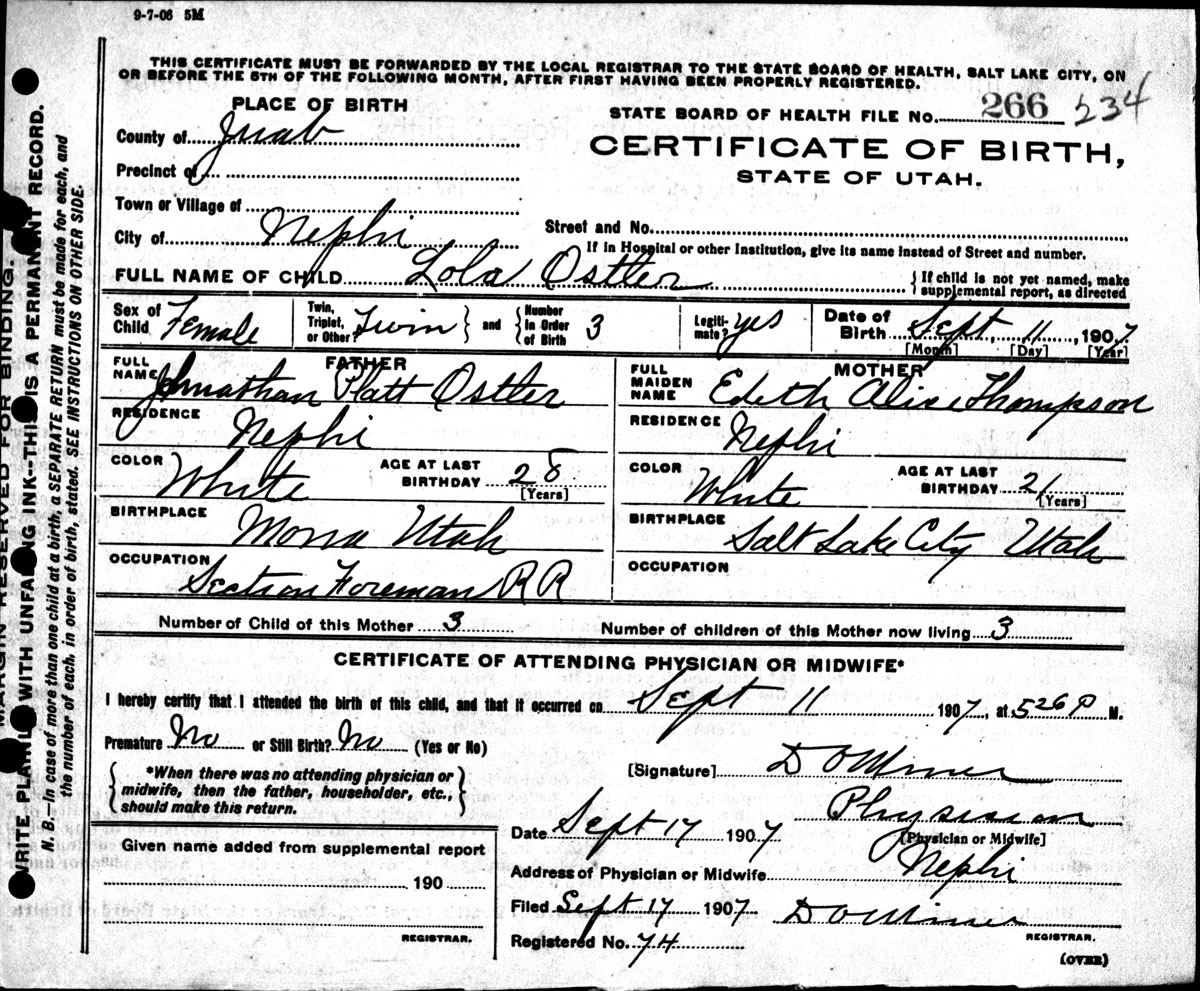 9-7-06 5M
THIS CERTIFICATE MUST BE FORWARDED BY THE LOCAL REGISTRAR TO THE STATE BOARD OF HEALTH, SALT LAKE CITY, ON
OR BEFORE THE 5TH OF THE FOLLOWING MONTH, AFTER FIRST HAVING BEEN PROPERLY REGISTERED.
PLACE OF BIRTH
County of Juab
Precinct of
Town or Village of
City of Nephi
STATE BOARD OF HEALTH FILE No. 266 234
CERTIFICATE OF BIRTH,
STATE OF UTAH.
Street and No.
If in Hospital or other Institution, give its name instead of Street and number.
FULL NAME OF CHILD Lola Ostler { If child is not yet named, make supplemental report, as directed
Sex of Child Female Twin, Triplet, or Other? Twin } and { Number in Order of Birth 3 Legiti-mate? yes Date of Birth Sept, 11, 1907.
[Month] [Day] [Year]
FATHER
FULL NAME Johnathan Platt Ostler
RESIDENCE Nephi
COLOR White AGE AT LAST BIRTHDAY 28 [Years]
BIRTHPLACE Mona Utah
OCCUPATION Section Foreman R R
MOTHER
FULL MAIDEN NAME Edeth Alise Thompson
RESIDENCE Nephi
COLOR White AGE AT LAST BIRTHDAY 21 [Years]
BIRTHPLACE Salt Lake City Utah
OCCUPATION
Number of Child of this Mother 3 Number of children of this Mother now living 3
CERTIFICATE OF ATTENDING PHYSICIAN OR MIDWIFE*
I hereby certify that I attended the birth of this child, and that it occurred on Sept 11 1907, at 5 26 P M.
Premature No or Still Birth? No (Yes or No)
{ *When there was no attending physician or midwife, then the father, householder, etc., should make this return. }
[Signature] D O Miner
Physician
[Physician or Midwife]
Date Sept 17 1907
Address of Physician or Midwife Nephi
Filed Sept 17 1907 D O Miner
REGISTRAR.
Registered No. 74
(OVER)
Given name added from supplemental report
190
REGISTRAR.
MARGIN RESERVED FOR BINDING.
WRITE PLAINLY WITH UNFADING INK--THIS IS A PERMANENT RECORD.
N. B.—In case of more than one child at a birth, a SEPARATE RETURN must be made for each, and
the number of each, in order of birth, stated. SEE INSTRUCTIONS ON OTHER SIDE.